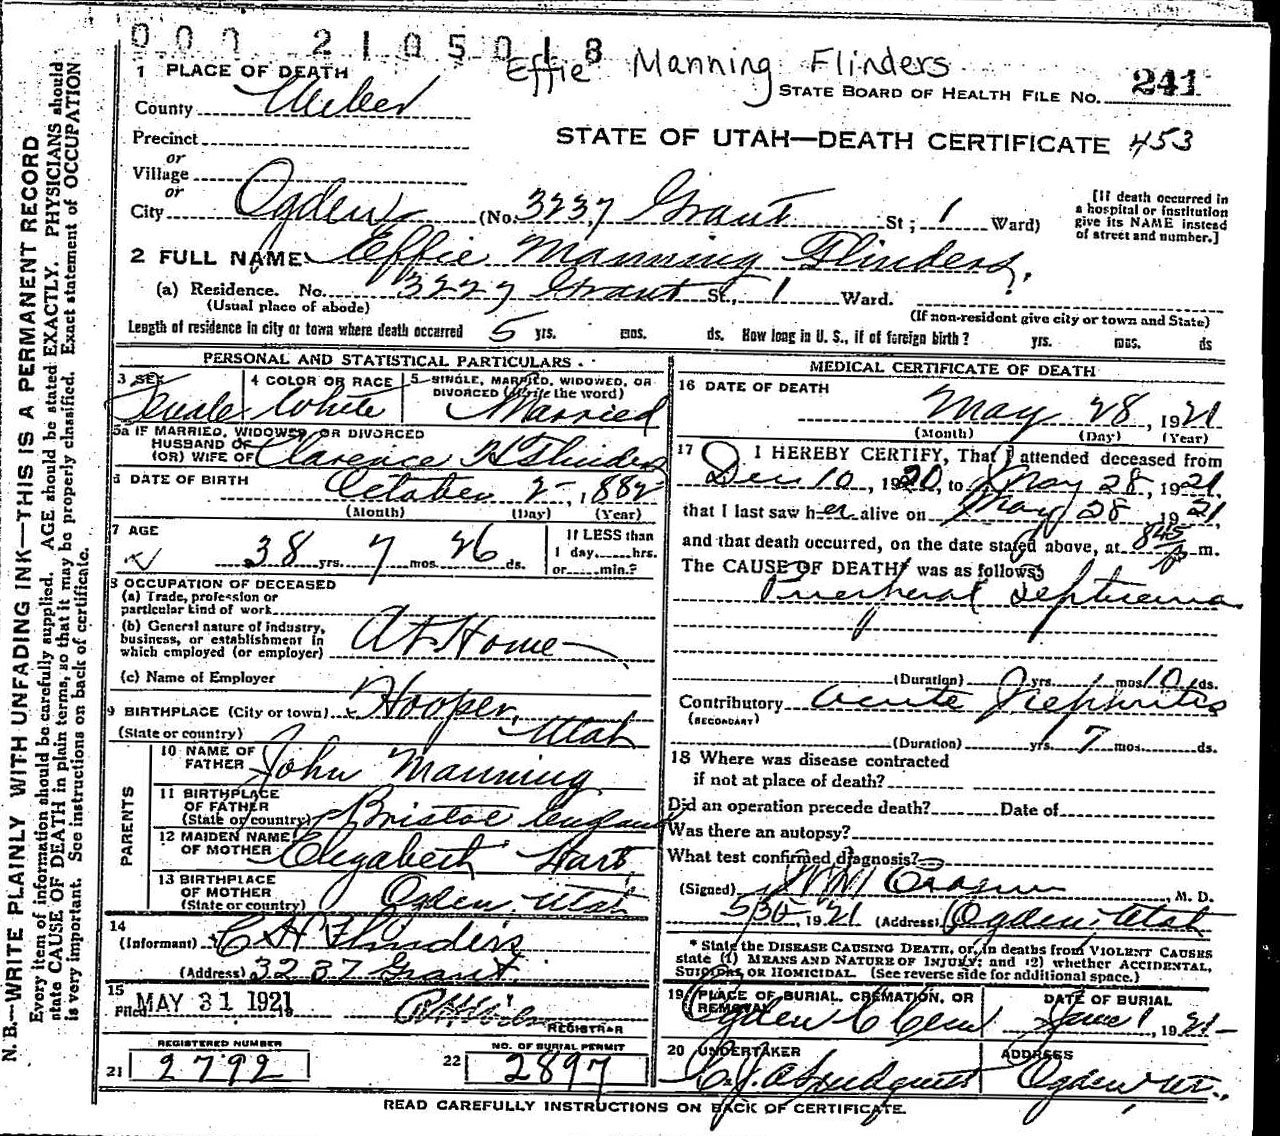 000 2105018
Effie Manning Flinders
1 PLACE OF DEATH
County Weber
STATE BOARD OF HEALTH FILE NO. 241
Precinct
or
Village
or
STATE OF UTAH—DEATH CERTIFICATE 453
City Ogden (No. 3237 Grant St; 1 Ward)
[If death occurred in a hospital or institution give its NAME instead of street and number.]
2 FULL NAME Effie Manning Flinders.
(a) Residence. No. 3227 Grant St., 1 Ward.
(Usual place of abode) (If non-resident give city or town and State)
Length of residence in city or town where death occurred 5 yrs. mos. ds. How long in U. S., if of foreign birth? yrs. mos. ds
PERSONAL AND STATISTICAL PARTICULARS
3 SEX Female
4 COLOR OR RACE White
5 SINGLE, MARRIED, WIDOWED, OR DIVORCED (Write the word) Married
5a IF MARRIED, WIDOWED, OR DIVORCED
HUSBAND OF
(OR) WIFE OF Clarence H Flinders
6 DATE OF BIRTH October 2-, 1882
(Month) (Day) (Year)
7 AGE
38 yrs. 7 mos. 26 ds.
If LESS than
1 day,......hrs.
or......min.?
8 OCCUPATION OF DECEASED
(a) Trade, profession or
particular kind of work
(b) General nature of industry,
business, or establishment in
which employed (or employer) At Home
(c) Name of Employer
9 BIRTHPLACE (City or town) Hooper,
(State or country) Utah
PARENTS
10 NAME OF
FATHER John Manning
11 BIRTHPLACE
OF FATHER
(State or country) Bristol England
12 MAIDEN NAME
OF MOTHER Elizabeth Hart
13 BIRTHPLACE
OF MOTHER
(State or country) Ogden, Utah
14
(Informant) C H Flinders
(Address) 3237 Grant.
15
Filed MAY 31 1921
REGISTRAR
REGISTERED NUMBER
21 2792
NO. OF BURIAL PERMIT
22 2897
MEDICAL CERTIFICATE OF DEATH
16 DATE OF DEATH
May 28, 1921
(Month) (Day) (Year)
17 I HEREBY CERTIFY, That I attended deceased from
Dec 10, 1920, to May 28, 1921
that I last saw her alive on May 28 1921
and that death occurred, on the date stated above, at 845 p m.
The CAUSE OF DEATH was as follows:
Puerperal Septicemia
(Duration) yrs. mos 10 ds.
Contributory acute Nephritis
(SECONDARY)
(Duration) yrs. 7 mos. ds.
18 Where was disease contracted
if not at place of death?
Did an operation precede death? Date of
Was there an autopsy?
What test confirmed diagnosis?
(Signed) M. D.
5/30, 1921 (Address) Ogden, Utah
* State the DISEASE CAUSING DEATH, or, in deaths from VIOLENT CAUSES
state (1) MEANS AND NATURE OF INJURY; and (2) whether ACCIDENTAL,
SUICIDAL OR HOMICIDAL. (See reverse side for additional space.)
19 PLACE OF BURIAL, CREMATION, OR
REMOVAL
Ogden C Cem
DATE OF BURIAL
June 1, 1921-
20 UNDERTAKER
C. J. A Lindquist
ADDRESS
Ogden Ut.
READ CAREFULLY INSTRUCTIONS ON BACK OF CERTIFICATE.
N. B.—WRITE PLAINLY WITH UNFADING INK—THIS IS A PERMANENT RECORD
Every item of information should be carefully supplied. AGE should be stated EXACTLY. PHYSICIANS should
state CAUSE OF DEATH in plain terms, so that it may be properly classified. Exact statement of OCCUPATION
is very important. See instructions on back of certificate.